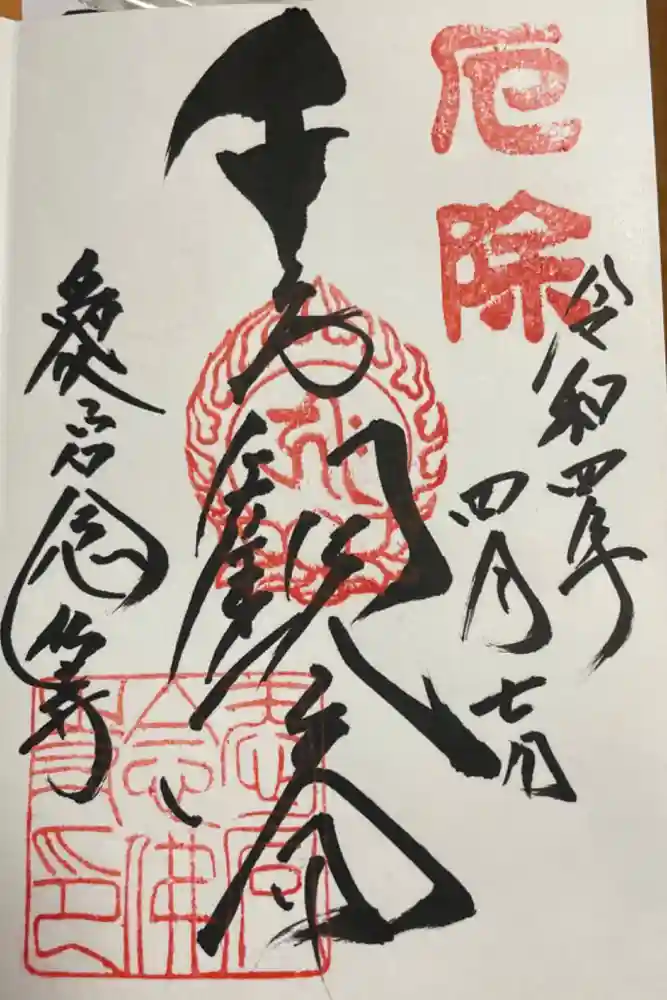 厄除
令和四年
四月七日
千手観音
愛宕念仏寺
愛宕
念佛